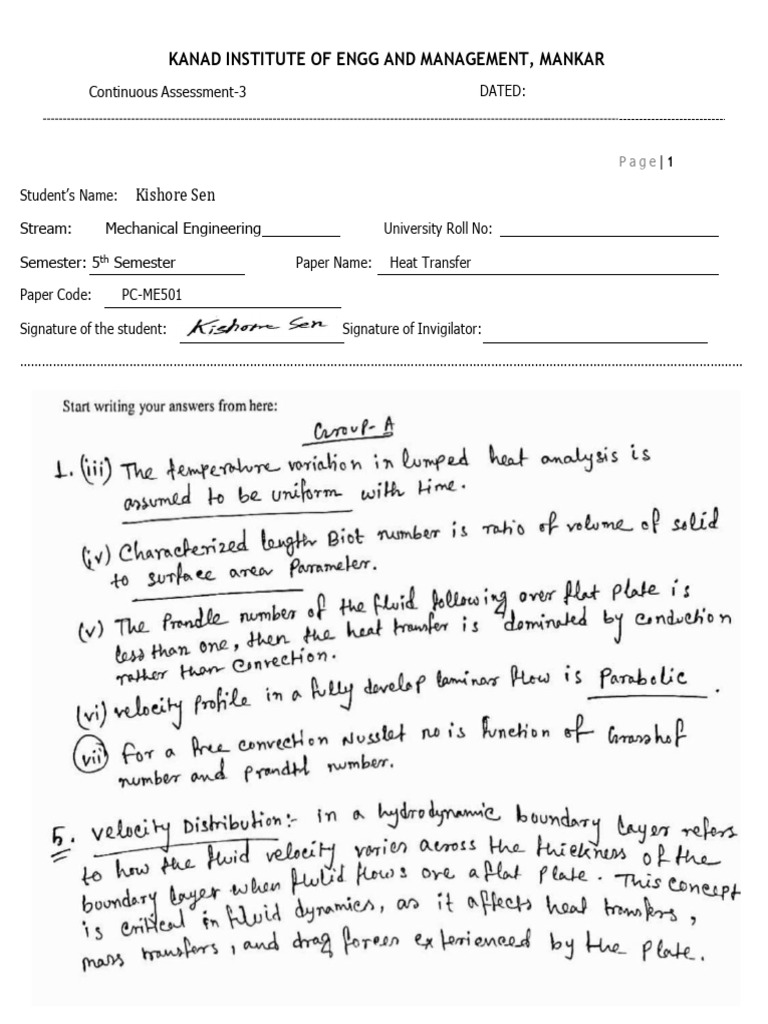 KANAD INSTITUTE OF ENGG AND MANAGEMENT, MANKAR
Continuous Assessment-3 DATED:
Page| 1
Student's Name: Kishore Sen
Stream: Mechanical Engineering University Roll No:
Semester: 5th Semester Paper Name: Heat Transfer
Paper Code: PC-ME501
Signature of the student: Kishore Sen Signature of Invigilator:
Start writing your answers from here:
Group-A
1. (iii) The temperature variation in lumped heat analysis is
assumed to be uniform with time.
(iv) Characterized length Biot number is ratio of volume of solid
to surface area Parameter.
(v) The Prandle number of the fluid following over flat plate is
less than one, then the heat transfer is dominated by conduction
rather than convection.
(vi) velocity profile in a fully develop laminar flow is Parabolic.
(vii) For a free convection Nusslet no is function of Grasshof
number and prandtl number.
5. velocity Distribution:- in a hydrodynamic boundary layer refers
to how the fluid velocity varies across the thickness of the
boundary layer when fluid flows ove a flat plate. This concept
is critical in fluid dynamics, as it affects heat transfers,
mass transfers, and drag forces experienced by the plate.